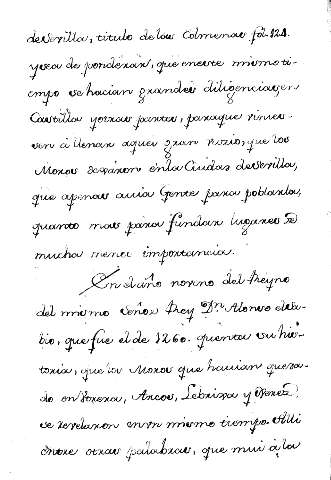 de Sevilla, titulo de las Colmenas fol. 121.
y es a de ponderar, que en este mismo ti-
empo se hacian grandes diligencias en
Castilla y otras partes, para que vinies-
sen a llenar aquel gran vazio, que los
Moros dexaron en la Ciudad de Sevilla,
que apenas auia Gente para poblarla,
quanto mas para fundar lugares de
mucha menor importancia.
En el año noveno del Reyno
del mismo Señor Rey Dn. Alonso el Sa-
bio, que fue el de 1260. quenta su his-
toria, que los Moros que hauian queda-
do en Vtrera, Arcos, Lebrixa y Xerez
se revelaron en vn mismo tiempo. Alli
entre otras palabras, que mui a la